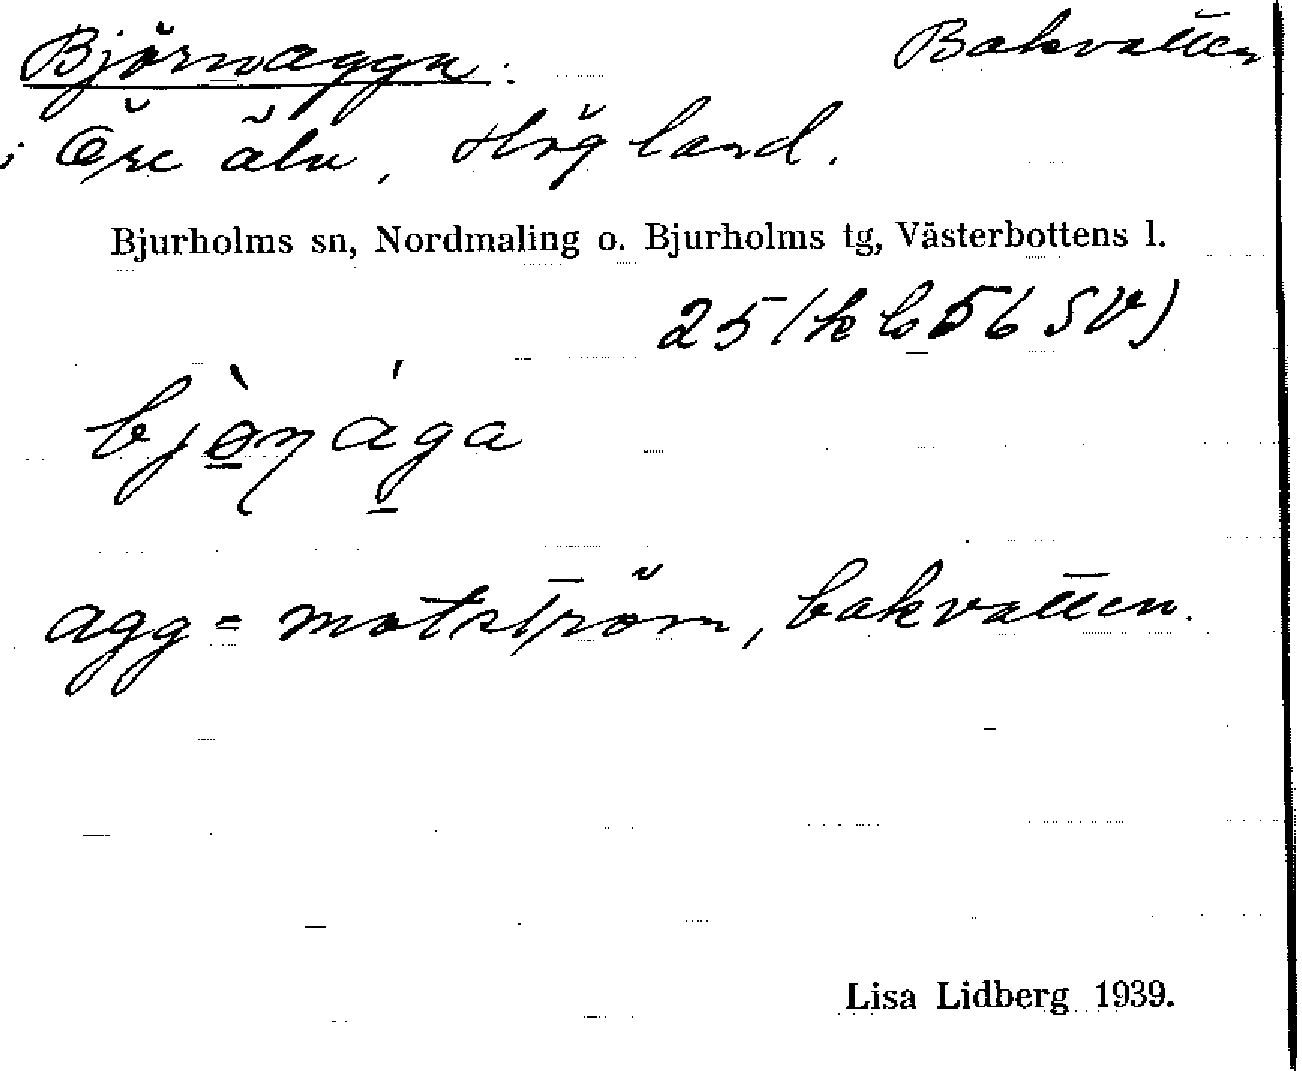 Björnaggn. Bakvatten
i Öre älv, Högland.
Bjurholms sn, Nordmaling o. Bjurholms tg, Västerbottens l.
25 (kb 56 SV)
agg = motström, bakvatten.
Lisa Lidberg 1939.